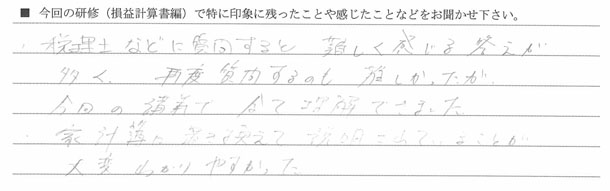 ■ 今回の研修（損益計算書編）で特に印象に残ったことや感じたことなどをお聞かせ下さい。
・税理士などに質問すると 難しく感じる答えが
多く、再度質問するのも 難しかったが、
今回の講義で 全て理解できました
・家計簿に置き換えて 説明されていることが
大変わかりやすかった